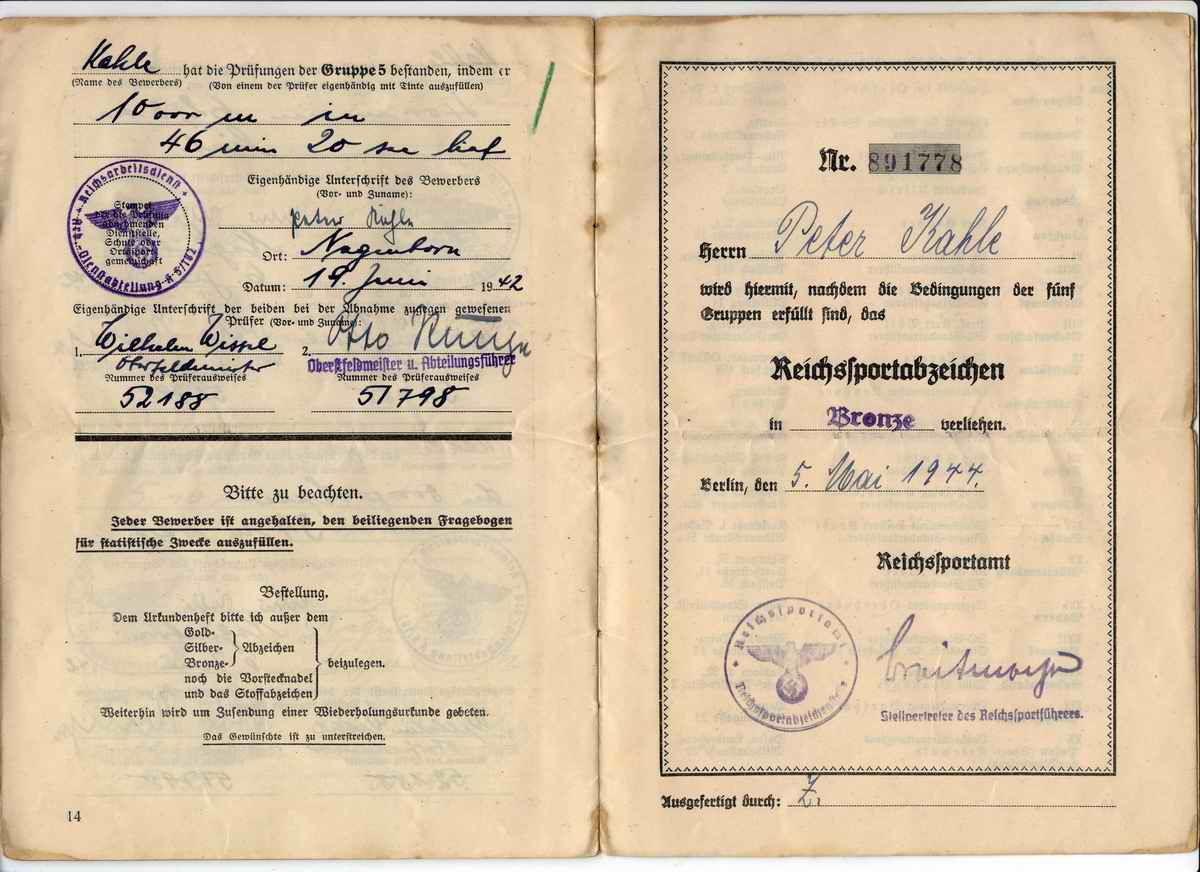 Kahle hat die Prüfungen der Gruppe 5 bestanden, indem er
(Name des Bewerbers) (Von einem der Prüfer eigenhändig mit Tinte auszufüllen)
10000 m in
46 min 20 sec lief
Eigenhändige Unterschrift des Bewerbers
(Vor- und Zuname):
Peter Kahle
Ort:
Datum: 19. Juni 1942
Reichsarbeitsdienst
Stempel
der die Prüfung
abnehmenden
Dienststelle,
Schule oder
Ortssport-
gemeinschaft
Eigenhändige Unterschrift der beiden bei der Abnahme zugegen gewesenen
Prüfer (Vor- und Zuname):
1. Wilhelm Wissel 2. Otto
Oberfeldmeister Oberstfeldmeister u. Abteilungsführer
Nummer des Prüferausweises Nummer des Prüferausweises
52188 51798
Bitte zu beachten.
Jeder Bewerber ist angehalten, den beiliegenden Fragebogen
für statistische Zwecke auszufüllen.
Bestellung.
Dem Urkundenheft bitte ich außer dem
Gold-
Silber- Abzeichen
Bronze- beizulegen.
noch die Vorstecknadel
und das Stoffabzeichen
Weiterhin wird um Zusendung einer Wiederholungsurkunde gebeten.
Das Gewünschte ist zu unterstreichen.
14
Nr. 891778
Herrn Peter Kahle
wird hiermit, nachdem die Bedingungen der fünf
Gruppen erfüllt sind, das
Reichssportabzeichen
in Bronze verliehen.
Berlin, den 5. Mai 1944.
Reichssportamt
Reichssportamt
Breitmeyer
Stellvertreter des Reichssportführers.
Ausgefertigt durch: Z.